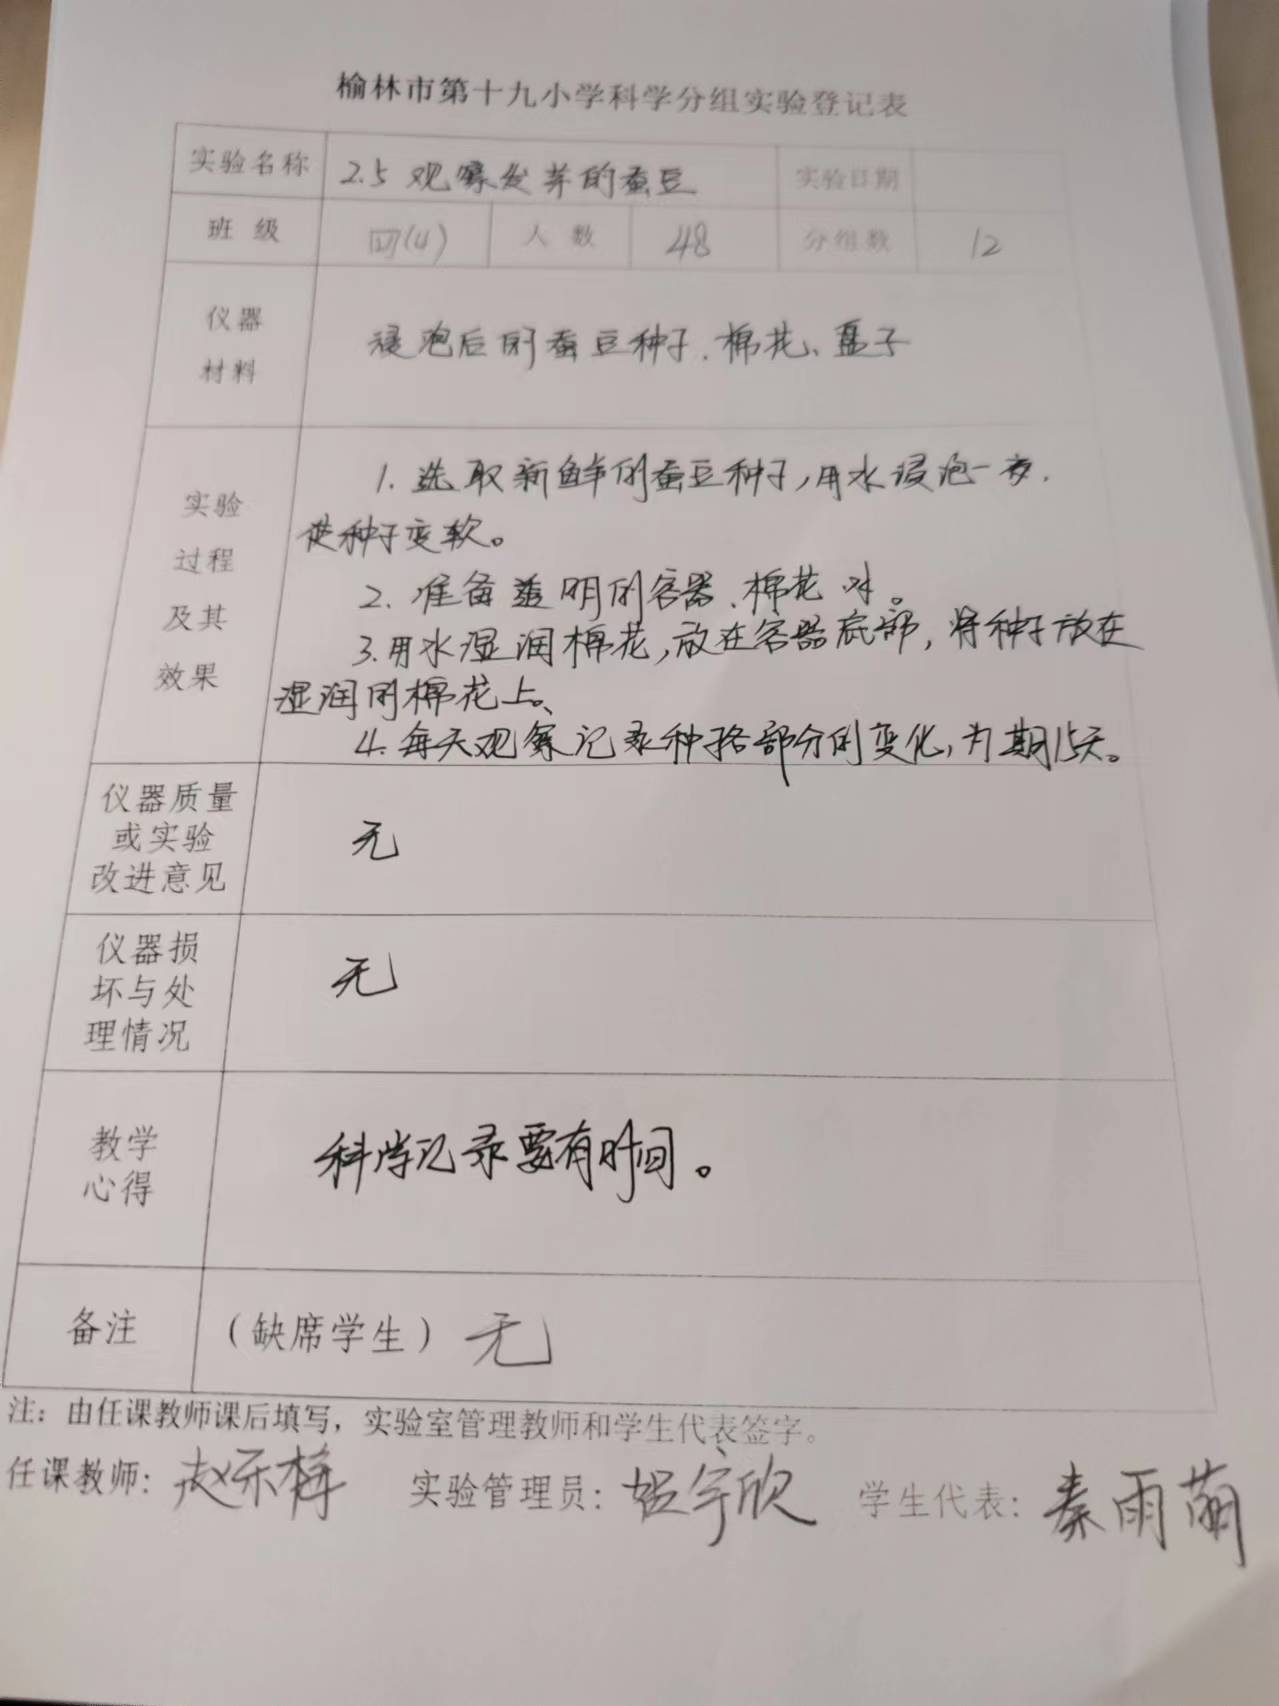 榆林市第十九小学科学分组实验登记表
实验名称 2.5 观察发芽的蚕豆 实验日期
班 级 四(4) 人 数 48 分组数 12
仪器
材料
浸泡后的蚕豆种子、棉花、盘子
实验
过程
及其
效果
1. 选取新鲜的蚕豆种子,用水浸泡一夜,
使种子变软。
2. 准备透明的容器、棉花、水。
3.用水湿润棉花,放在容器底部,将种子放在
湿润的棉花上。
4.每天观察记录种子各部分的变化,为期15天。
仪器质量
或实验
改进意见
无
仪器损
坏与处
理情况
无
教学
心得
科学记录要有时间。
备注 (缺席学生) 无
注:由任课教师课后填写,实验室管理教师和学生代表签字。
任课教师: 赵乐梅 实验管理员: 宇欣 学生代表: 秦雨萌